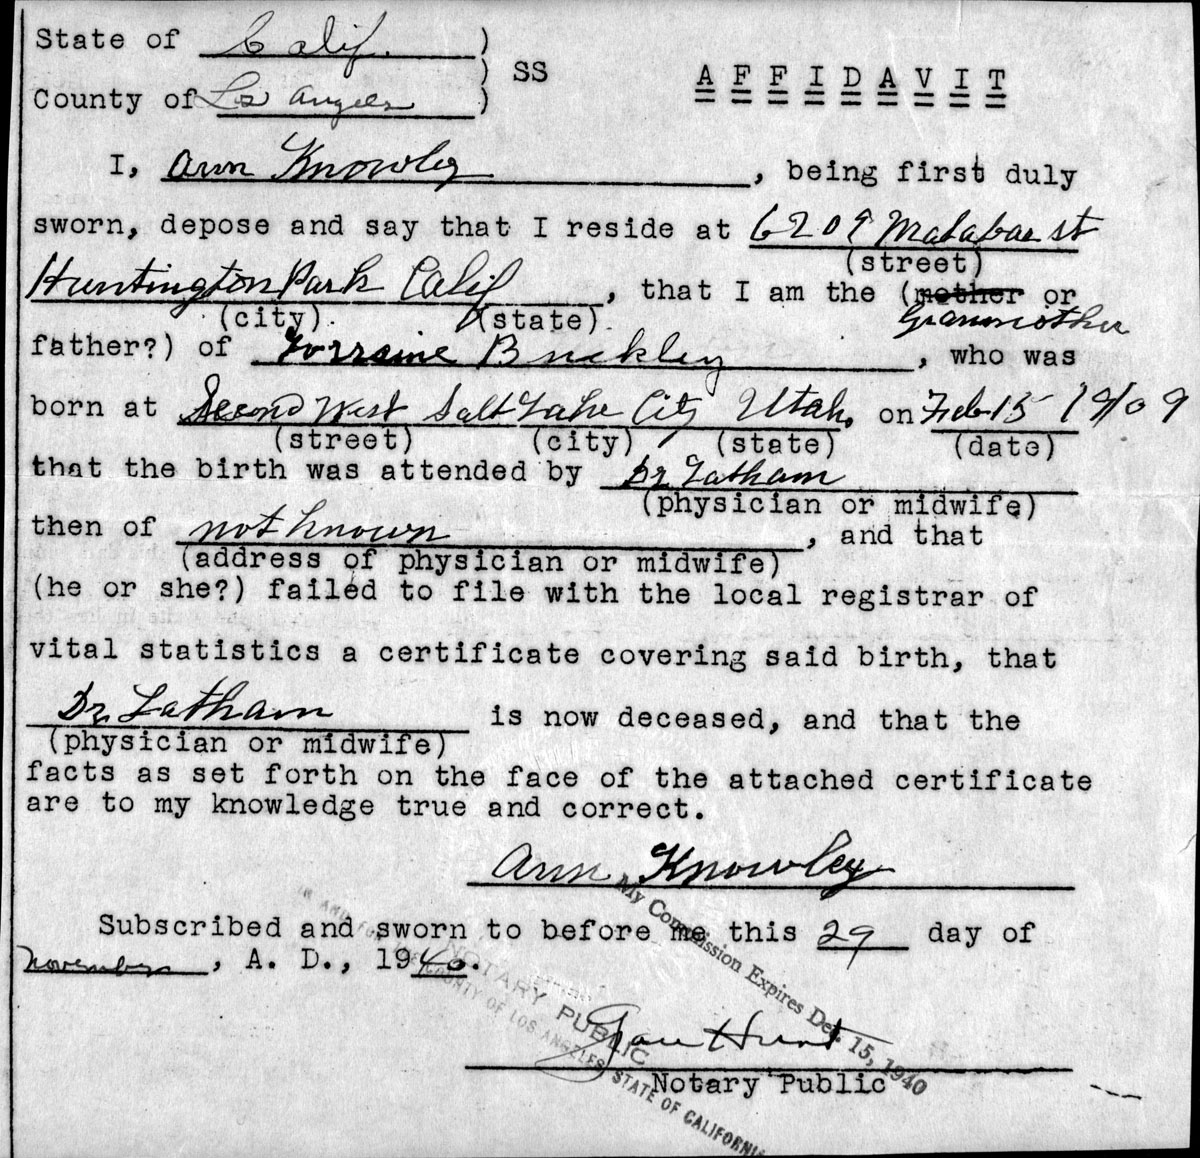 State of Calif. )
) SS AFFIDAVIT
County of Los Angeles )
I, Ann Knowley, being first duly
sworn, depose and say that I reside at 6209 Malabar st
(street)
Huntington Park Calif, that I am the (mother or
(city) (state) Grandmother
father?) of Lorraine Buckley, who was
born at Second West Salt Lake City Utah, on Feb 15 1909
(street) (city) (state) (date)
that the birth was attended by Dr Latham
(physician or midwife)
then of not known, and that
(address of physician or midwife)
(he or she?) failed to file with the local registrar of
vital statistics a certificate covering said birth, that
Dr. Latham is now deceased, and that the
(physician or midwife)
facts as set forth on the face of the attached certificate
are to my knowledge true and correct.
Ann Knowley
My Commission Expires Dec. 15, 1940
Subscribed and sworn to before me this 29 day of
November, A. D., 1940.
NOTARY PUBLIC
IN AND FOR THE COUNTY OF LOS ANGELES, STATE OF CALIFORNIA
Hunt
Notary Public